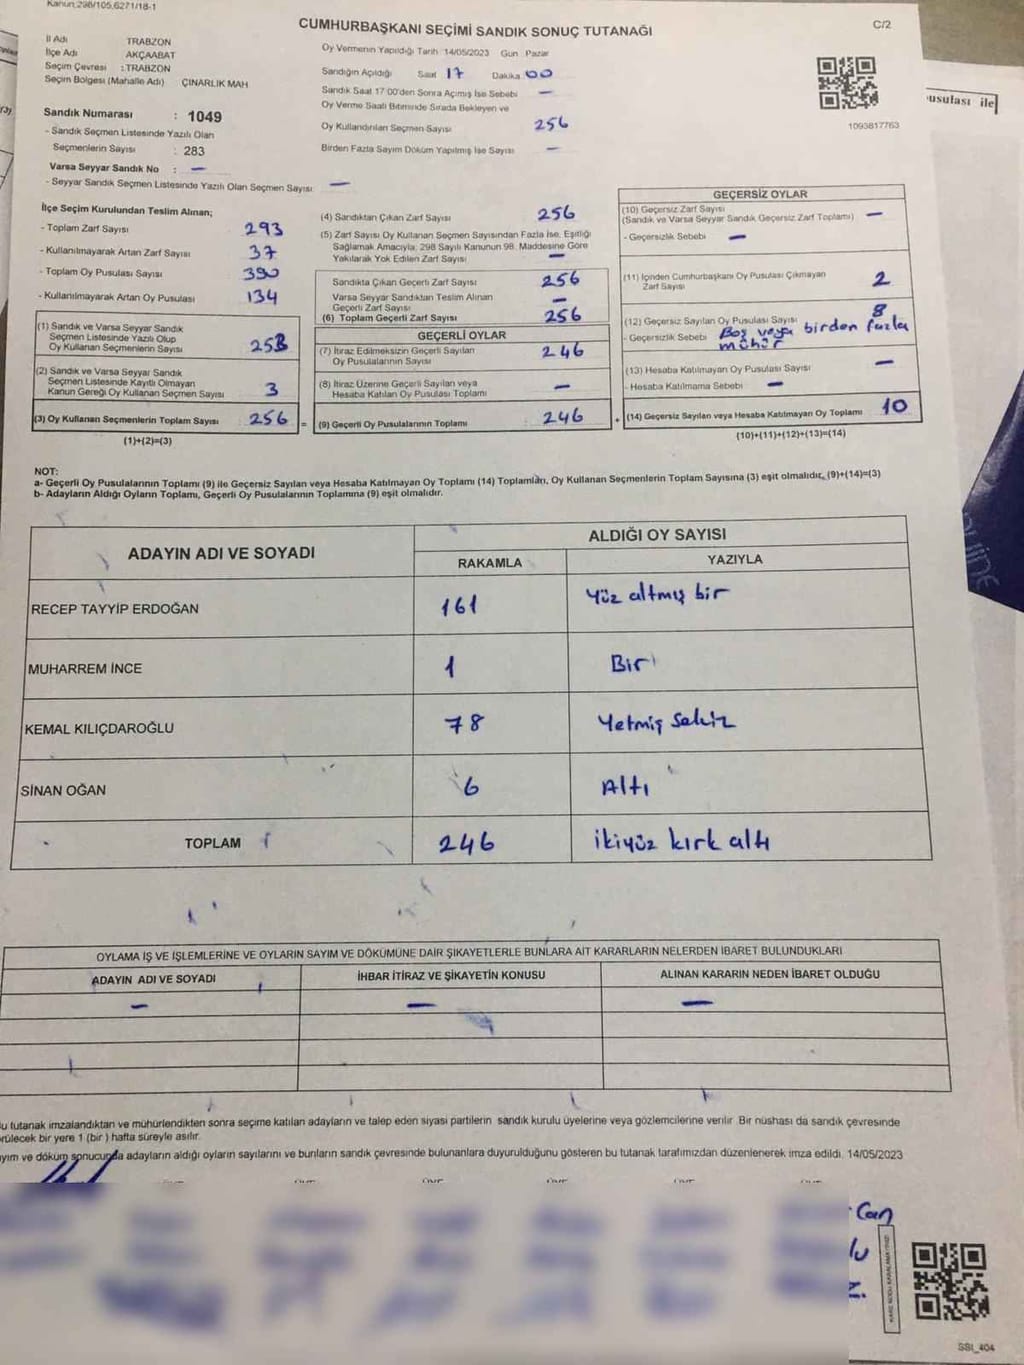 Kanun:298/105,6271/18-1
CUMHURBAŞKANI SEÇİMİ SANDIK SONUÇ TUTANAĞI
C/2
İl Adı TRABZON
İlçe Adı AKÇAABAT
Seçim Çevresi : TRABZON
Seçim Bölgesi (Mahalle Adı) ÇINARLIK MAH
Oy Vermenin Yapıldığı Tarih 14/05/2023 Gün Pazar
Sandığın Açıldığı Saat 17 Dakika 00
Sandık Saat 17:00'den Sonra Açılmış İse Sebebi —
Oy Verme Saati Bitiminde Sırada Bekleyen ve
Oy Kullandırılan Seçmen Sayısı 256
Birden Fazla Sayım Döküm Yapılmış İse Sayısı —
1093817763
usulası ile
Sandık Numarası : 1049
- Sandık Seçmen Listesinde Yazılı Olan
Seçmenlerin Sayısı : 283
Varsa Seyyar Sandık No : —
- Seyyar Sandık Seçmen Listesinde Yazılı Olan Seçmen Sayısı —
İlçe Seçim Kurulundan Teslim Alınan;
- Toplam Zarf Sayısı 293
- Kullanılmayarak Artan Zarf Sayısı 37
- Toplam Oy Pusulası Sayısı 390
- Kullanılmayarak Artan Oy Pusulası 134
(1) Sandık ve Varsa Seyyar Sandık
Seçmen Listesinde Yazılı Olup
Oy Kullanan Seçmenlerin Sayısı 253
(2) Sandık ve Varsa Seyyar Sandık
Seçmen Listesinde Kayıtlı Olmayan
Kanun Gereği Oy Kullanan Seçmen Sayısı 3
(3) Oy Kullanan Seçmenlerin Toplam Sayısı 256
(1)+(2)=(3)
(4) Sandıktan Çıkan Zarf Sayısı 256
(5) Zarf Sayısı Oy Kullanan Seçmen Sayısından Fazla İse, Eşitliği
Sağlamak Amacıyla, 298 Sayılı Kanunun 98. Maddesine Göre
Yakılarak Yok Edilen Zarf Sayısı —
Sandıkta Çıkan Geçerli Zarf Sayısı 256
Varsa Seyyar Sandıktan Teslim Alınan
Geçerli Zarf Sayısı —
(6) Toplam Geçerli Zarf Sayısı 256
GEÇERLİ OYLAR
(7) İtiraz Edilmeksizin Geçerli Sayılan
Oy Pusulalarının Sayısı 246
(8) İtiraz Üzerine Geçerli Sayılan veya
Hesaba Katılan Oy Pusulası Toplamı —
= (9) Geçerli Oy Pusulalarının Toplamı 246 +
GEÇERSİZ OYLAR
(10) Geçersiz Zarf Sayısı
(Sandık ve Varsa Seyyar Sandık Geçersiz Zarf Toplamı) —
- Geçersizlik Sebebi —
(11) İçinden Cumhurbaşkanı Oy Pusulası Çıkmayan
Zarf Sayısı 2
(12) Geçersiz Sayılan Oy Pusulası Sayısı 8
- Geçersizlik Sebebi Boş veya birden fazla
mühür
(13) Hesaba Katılmayan Oy Pusulası Sayısı —
- Hesaba Katılmama Sebebi —
(14) Geçersiz Sayılan veya Hesaba Katılmayan Oy Toplamı 10
(10)+(11)+(12)+(13)=(14)
NOT:
a- Geçerli Oy Pusulalarının Toplamı (9) ile Geçersiz Sayılan veya Hesaba Katılmayan Oy Toplamı (14) Toplamları, Oy Kullanan Seçmenlerin Toplam Sayısına (3) eşit olmalıdır, (9)+(14)=(3)
b- Adayların Aldığı Oyların Toplamı, Geçerli Oy Pusulalarının Toplamına (9) eşit olmalıdır.
ADAYIN ADI VE SOYADI
ALDIĞI OY SAYISI
RAKAMLA YAZIYLA
RECEP TAYYİP ERDOĞAN 161 Yüz altmış bir
MUHARREM İNCE 1 Bir
KEMAL KILIÇDAROĞLU 78 Yetmiş sekiz
SİNAN OĞAN 6 Altı
TOPLAM 246 ikiyüz kırk altı
OYLAMA İŞ VE İŞLEMLERİNE VE OYLARIN SAYIM VE DÖKÜMÜNE DAİR ŞİKAYETLERLE BUNLARA AİT KARARLARIN NELERDEN İBARET BULUNDUKLARI
ADAYIN ADI VE SOYADI İHBAR İTİRAZ VE ŞİKAYETİN KONUSU ALINAN KARARIN NEDEN İBARET OLDUĞU
— — —
u tutanak imzalandıktan ve mühürlendikten sonra seçime katılan adayların ve talep eden siyasi partilerin sandık kurulu üyelerine veya gözlemcilerine verilir. Bir nüshası da sandık çevresinde
rülecek bir yere 1 (bir) hafta süreyle asılır.
yım ve döküm sonucunda adayların aldığı oyların sayılarını ve bunların sandık çevresinde bulunanlara duyurulduğunu gösteren bu tutanak tarafımızdan düzenlenerek imza edildi. 14/05/2023
Can
lu
KARE KODU KARALAMAYINIZ!
SSI_404